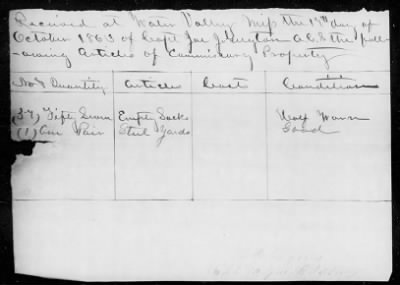 Received at Water Valley Miss the 19th day of
October 1863 of Capt Jas J. A.C.S the foll-
-owing Articles of Commissary Property
No & Quantity Articles Cost Condition
(57) Fifty Seven Empty Sacks Half Worn
(1) One Pair Steel Yards Good